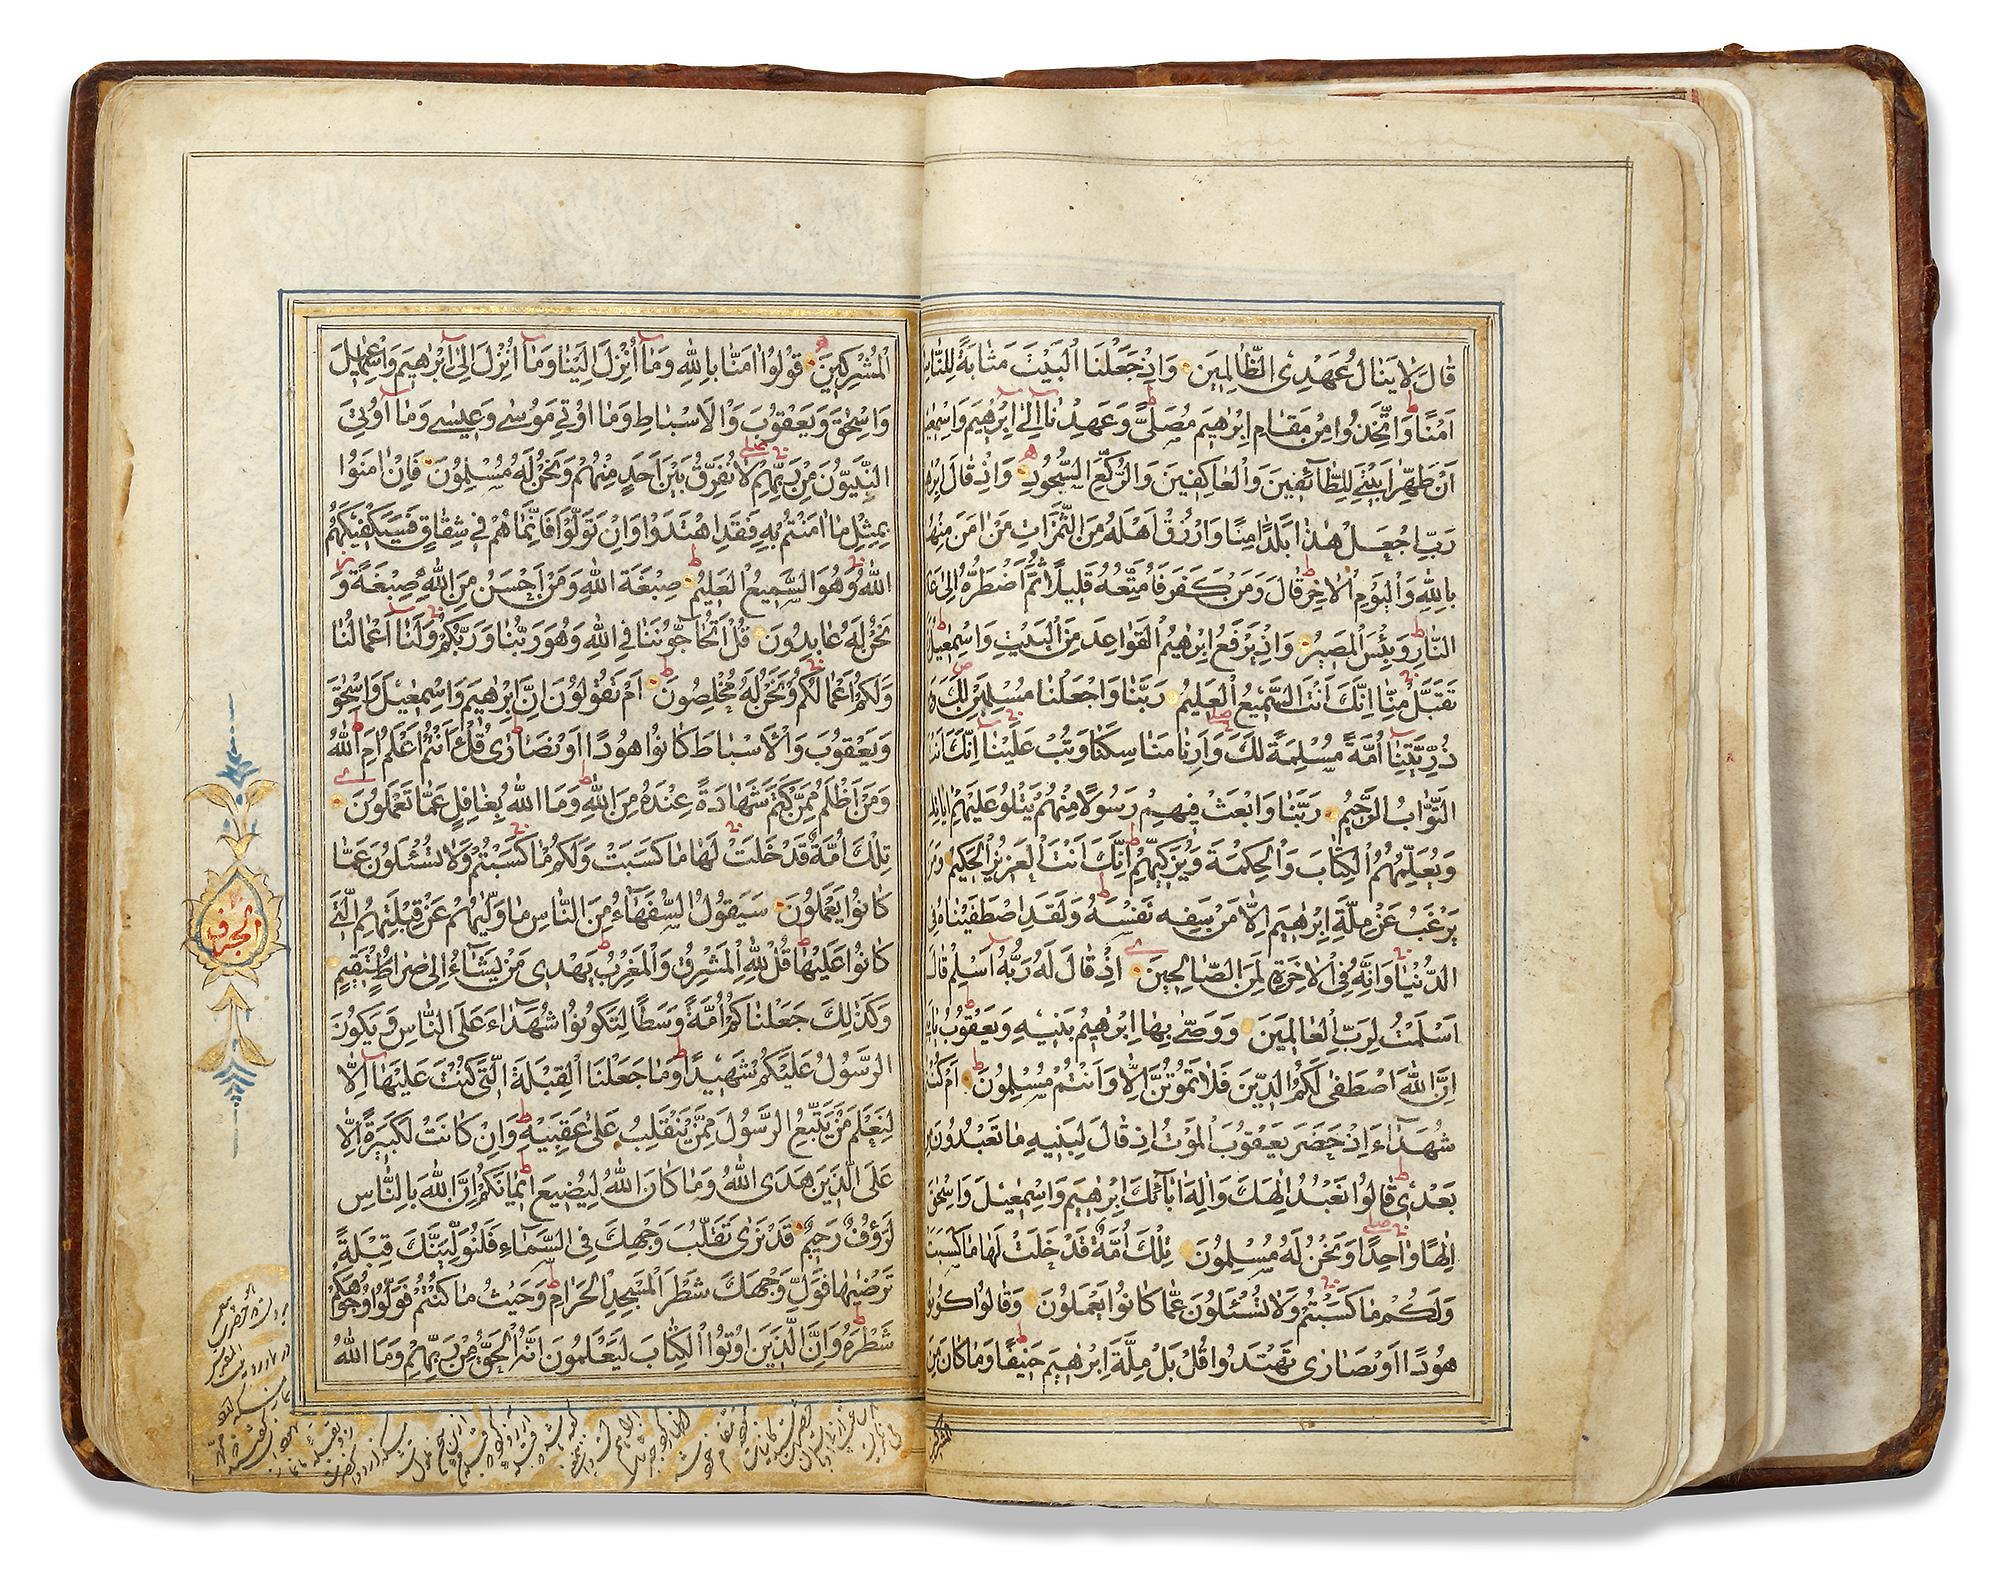 قَالَ لَا يَنَالُ عَهْدِى الظَّالِمِينَ وَاِذْ جَعَلْنَا الْبَيْتَ مَثَابَةً لِلنَّاسِ
اَمْنًا وَاتَّخِذُوا مِنْ مَقَامِ اِبْرٰهِيمَ مُصَلًّى وَعَهِدْنَا اِلٰى اِبْرٰهِيمَ وَاِسْمٰعِيلَ
اَنْ طَهِّرَا بَيْتِىَ لِلطَّائِفِينَ وَالْعَاكِفِينَ وَالرُّكَّعِ السُّجُودِ وَاِذْ قَالَ
رَبِّ اجْعَلْ هٰذَا بَلَدًا اٰمِنًا وَارْزُقْ اَهْلَهُ مِنَ الثَّمَرَاتِ مَنْ اٰمَنَ مِنْهُمْ
بِاللّٰهِ وَالْيَوْمِ الْاٰخِرِ قَالَ وَمَنْ كَفَرَ فَاُمَتِّعُهُ قَلِيلًا ثُمَّ اَضْطَرُّهُ اِلٰى
النَّارِ وَبِئْسَ الْمَصِيرُ وَاِذْ يَرْفَعُ اِبْرٰهِيمُ الْقَوَاعِدَ مِنَ الْبَيْتِ وَاِسْمٰعِيلُ
تَقَبَّلْ مِنَّا اِنَّكَ اَنْتَ السَّمِيعُ الْعَلِيمُ رَبَّنَا وَاجْعَلْنَا مُسْلِمَيْنِ لَكَ
ذُرِّيَّتِنَا اُمَّةً مُسْلِمَةً لَكَ وَاَرِنَا مَنَاسِكَنَا وَتُبْ عَلَيْنَا اِنَّكَ
التَّوَّابُ الرَّحِيمُ رَبَّنَا وَابْعَثْ فِيهِمْ رَسُولًا مِنْهُمْ يَتْلُو عَلَيْهِمْ
وَيُعَلِّمُهُمُ الْكِتَابَ وَالْحِكْمَةَ وَيُزَكِّيهِمْ اِنَّكَ اَنْتَ الْعَزِيزُ الْحَكِيمُ
يَرْغَبُ عَنْ مِلَّةِ اِبْرٰهِيمَ اِلَّا مَنْ سَفِهَ نَفْسَهُ وَلَقَدِ اصْطَفَيْنَاهُ فِى
الدُّنْيَا وَاِنَّهُ فِى الْاٰخِرَةِ لَمِنَ الصَّالِحِينَ اِذْ قَالَ لَهُ رَبُّهُ اَسْلِمْ قَالَ
اَسْلَمْتُ لِرَبِّ الْعَالَمِينَ وَوَصّٰى بِهَا اِبْرٰهِيمُ بَنِيهِ وَيَعْقُوبُ
اِنَّ اللّٰهَ اصْطَفٰى لَكُمُ الدِّينَ فَلَا تَمُوتُنَّ اِلَّا وَاَنْتُمْ مُسْلِمُونَ اَمْ كُنْتُمْ
شُهَدَاءَ اِذْ حَضَرَ يَعْقُوبَ الْمَوْتُ اِذْ قَالَ لِبَنِيهِ مَا تَعْبُدُونَ
بَعْدِى قَالُوا نَعْبُدُ اِلٰهَكَ وَاِلٰهَ اٰبَائِكَ اِبْرٰهِيمَ وَاِسْمٰعِيلَ وَاِسْحٰقَ
اِلٰهًا وَاحِدًا وَنَحْنُ لَهُ مُسْلِمُونَ تِلْكَ اُمَّةٌ قَدْ خَلَتْ لَهَا مَا كَسَبَتْ
وَلَكُمْ مَا كَسَبْتُمْ وَلَا تُسْئَلُونَ عَمَّا كَانُوا يَعْمَلُونَ وَقَالُوا كُونُوا
هُودًا اَوْ نَصَارٰى تَهْتَدُوا قُلْ بَلْ مِلَّةَ اِبْرٰهِيمَ حَنِيفًا وَمَا كَانَ مِنَ
الْمُشْرِكِينَ قُولُوا اٰمَنَّا بِاللّٰهِ وَمَا اُنْزِلَ اِلَيْنَا وَمَا اُنْزِلَ اِلٰى اِبْرٰهِيمَ وَاِسْمٰعِيلَ
وَاِسْحٰقَ وَيَعْقُوبَ وَالْاَسْبَاطِ وَمَا اُوتِىَ مُوسٰى وَعِيسٰى وَمَا اُوتِىَ
النَّبِيُّونَ مِنْ رَبِّهِمْ لَا نُفَرِّقُ بَيْنَ اَحَدٍ مِنْهُمْ وَنَحْنُ لَهُ مُسْلِمُونَ فَاِنْ اٰمَنُوا
بِمِثْلِ مَا اٰمَنْتُمْ بِهِ فَقَدِ اهْتَدَوْا وَاِنْ تَوَلَّوْا فَاِنَّمَا هُمْ فِى شِقَاقٍ فَسَيَكْفِيكَهُمُ
اللّٰهُ وَهُوَ السَّمِيعُ الْعَلِيمُ صِبْغَةَ اللّٰهِ وَمَنْ اَحْسَنُ مِنَ اللّٰهِ صِبْغَةً وَ
نَحْنُ لَهُ عَابِدُونَ قُلْ اَتُحَاجُّونَنَا فِى اللّٰهِ وَهُوَ رَبُّنَا وَرَبُّكُمْ وَلَنَا اَعْمَالُنَا
وَلَكُمْ اَعْمَالُكُمْ وَنَحْنُ لَهُ مُخْلِصُونَ اَمْ تَقُولُونَ اِنَّ اِبْرٰهِيمَ وَاِسْمٰعِيلَ وَاِسْحٰقَ
وَيَعْقُوبَ وَالْاَسْبَاطَ كَانُوا هُودًا اَوْ نَصَارٰى قُلْ ءَاَنْتُمْ اَعْلَمُ اَمِ اللّٰهُ
وَمَنْ اَظْلَمُ مِمَّنْ كَتَمَ شَهَادَةً عِنْدَهُ مِنَ اللّٰهِ وَمَا اللّٰهُ بِغَافِلٍ عَمَّا تَعْمَلُونَ
تِلْكَ اُمَّةٌ قَدْ خَلَتْ لَهَا مَا كَسَبَتْ وَلَكُمْ مَا كَسَبْتُمْ وَلَا تُسْئَلُونَ عَمَّا
كَانُوا يَعْمَلُونَ سَيَقُولُ السُّفَهَاءُ مِنَ النَّاسِ مَا وَلّٰيهُمْ عَنْ قِبْلَتِهِمُ الَّتِى
كَانُوا عَلَيْهَا قُلْ لِلّٰهِ الْمَشْرِقُ وَالْمَغْرِبُ يَهْدِى مَنْ يَشَاءُ اِلٰى صِرَاطٍ مُسْتَقِيمٍ
وَكَذٰلِكَ جَعَلْنَاكُمْ اُمَّةً وَسَطًا لِتَكُونُوا شُهَدَاءَ عَلَى النَّاسِ وَيَكُونَ
الرَّسُولُ عَلَيْكُمْ شَهِيدًا وَمَا جَعَلْنَا الْقِبْلَةَ الَّتِى كُنْتَ عَلَيْهَا اِلَّا
لِنَعْلَمَ مَنْ يَتَّبِعُ الرَّسُولَ مِمَّنْ يَنْقَلِبُ عَلٰى عَقِبَيْهِ وَاِنْ كَانَتْ لَكَبِيرَةً اِلَّا
عَلَى الَّذِينَ هَدَى اللّٰهُ وَمَا كَانَ اللّٰهُ لِيُضِيعَ اِيمَانَكُمْ اِنَّ اللّٰهَ بِالنَّاسِ
لَرَؤُفٌ رَحِيمٌ قَدْ نَرٰى تَقَلُّبَ وَجْهِكَ فِى السَّمَاءِ فَلَنُوَلِّيَنَّكَ قِبْلَةً
تَرْضٰيهَا فَوَلِّ وَجْهَكَ شَطْرَ الْمَسْجِدِ الْحَرَامِ وَحَيْثُ مَا كُنْتُمْ فَوَلُّوا وُجُوهَكُمْ
شَطْرَهُ وَاِنَّ الَّذِينَ اُوتُوا الْكِتَابَ لَيَعْلَمُونَ اَنَّهُ الْحَقُّ مِنْ رَبِّهِمْ وَمَا اللّٰهُ